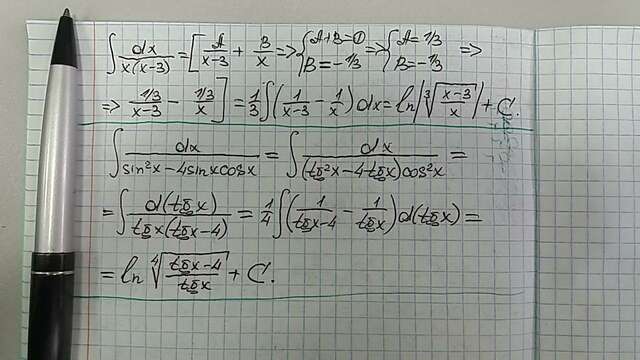 ∫ dx/(x(x-3)) = [A/(x-3) + B/x => {A+B=0 B=-1/3 => {A=1/3 B=-1/3 =>
=> (1/3)/(x-3) - (1/3)/x] = 1/3 ∫(1/(x-3) - 1/x) dx = ln|∛((x-3)/x)| + C.
∫ dx/(sin²x-4sinxcosx) = ∫ dx/((tg²x-4tgx)cos²x) =
= ∫ d(tgx)/(tgx(tgx-4)) = 1/4 ∫(1/(tgx-4) - 1/tgx) d(tgx) =
= ln ∜((tgx-4)/tgx) + C.